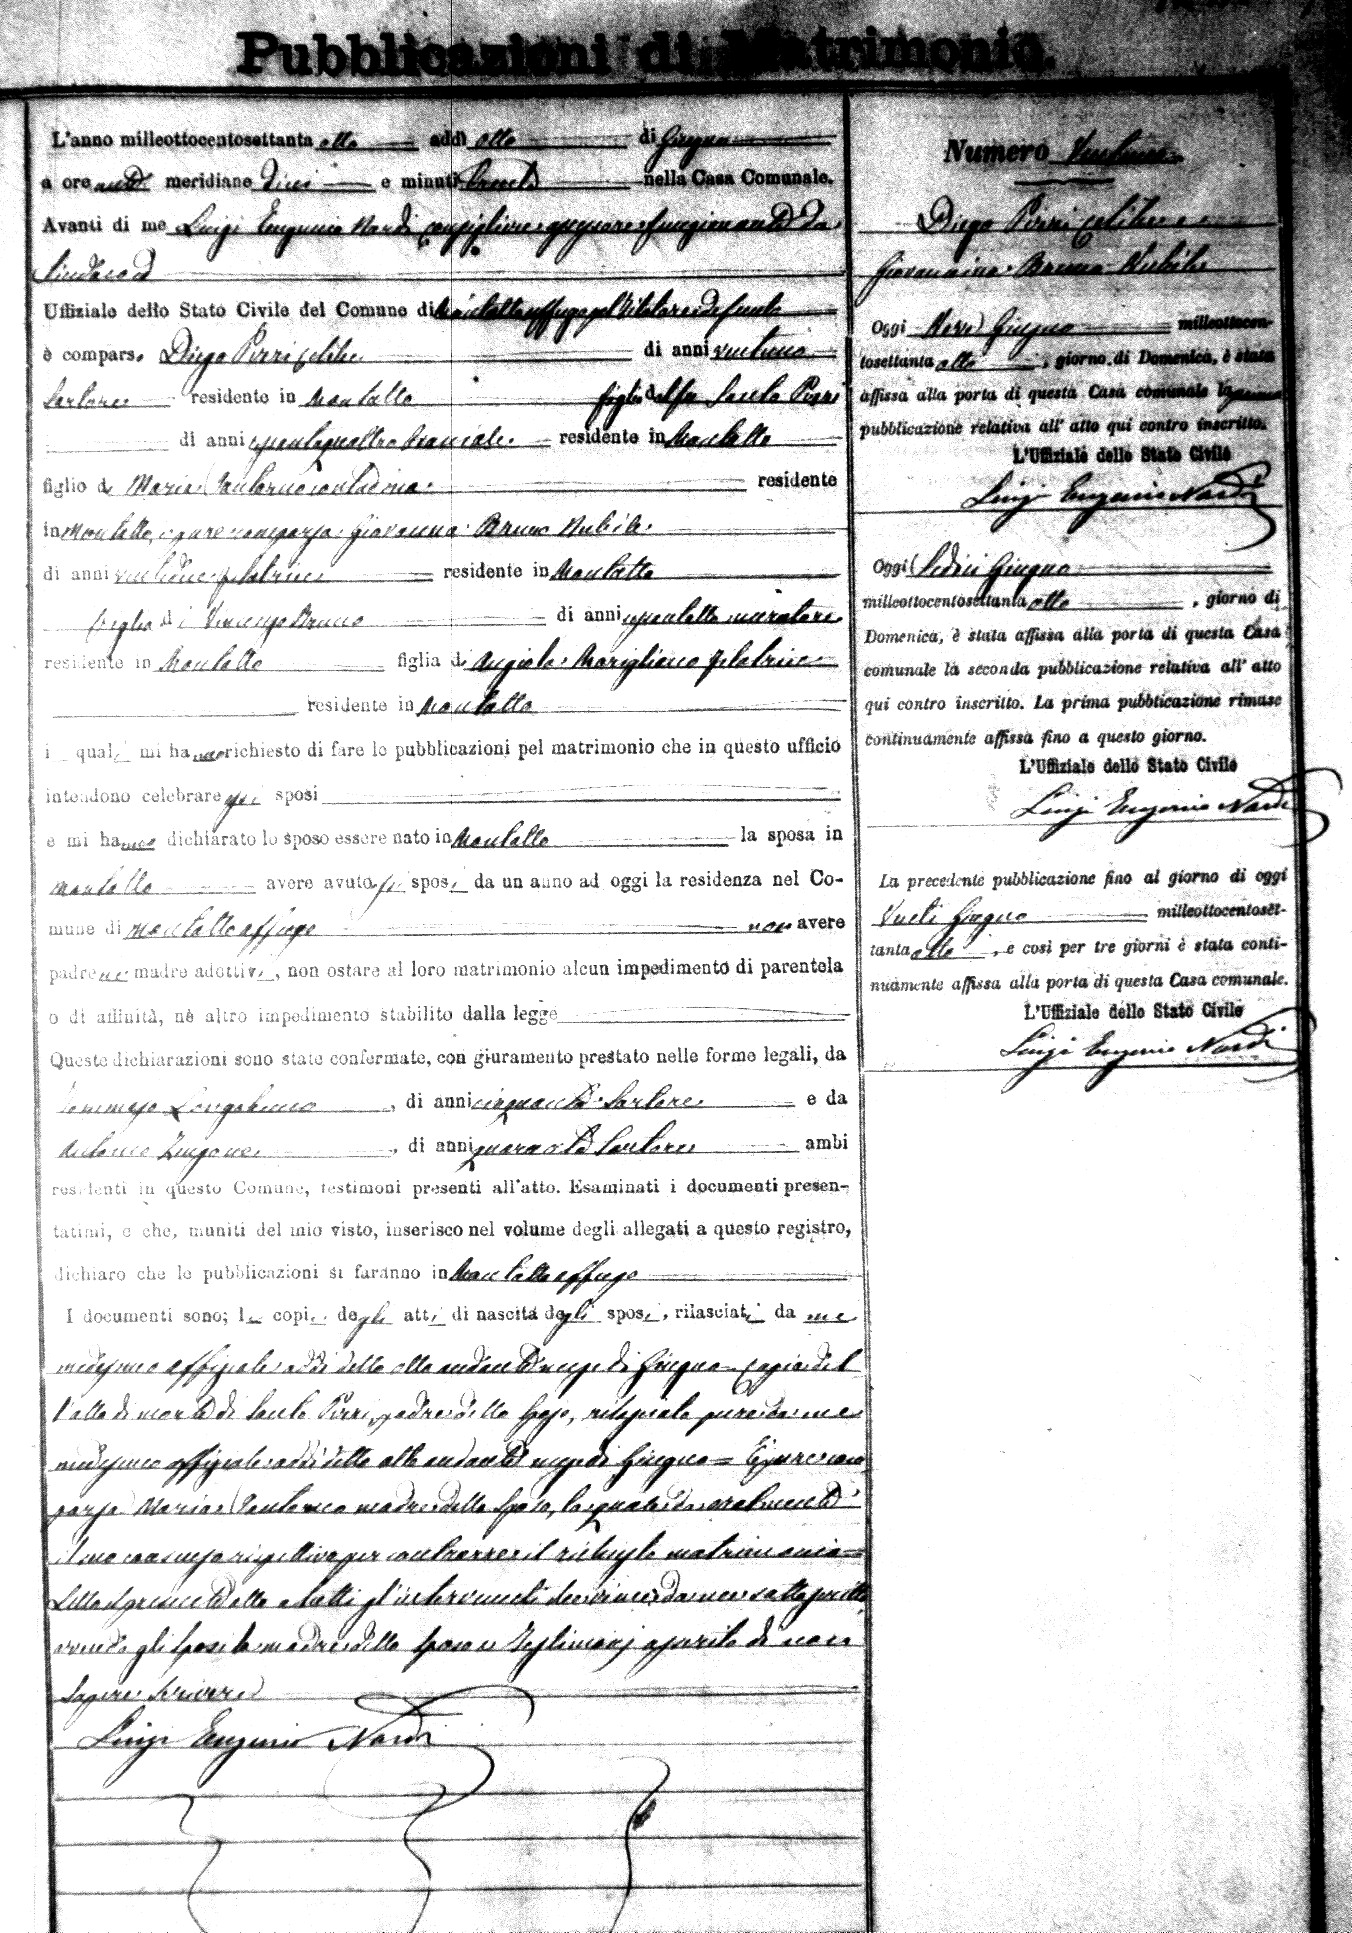 Pubblicazioni di Matrimonio.
L'anno milleottocentosettanta otto addì otto di Giugno
a ore ant. meridiane dieci e minuti venti nella Casa Comunale.
Avanti di me Luigi Eugenio Nardi consigliere funzionante da
Sindaco ed
Uffiziale dello Stato Civile del Comune di Montalto Uffugo pel titolare defunto
è compars o Diego Pirri celibe di anni ventuno
Sartore residente in Montalto figlio del fu Santo Pirri
di anni residente in Montalto
figlio di Maria contadina residente
in Montalto, e pure comparsa Giovanna Bruno Nubile
di anni filatrice residente in Montalto
figlia di Vincenzo Bruno di anni muratore
residente in Montalto figlia di Angiola Marigliano filatrice
residente in Montalto
i quali mi hanno richiesto di fare le pubblicazioni pel matrimonio che in questo ufficio
intendono celebrare essi sposi
e mi hanno dichiarato lo sposo essere nato in Montalto la sposa in
Montalto avere avuto gli sposi da un anno ad oggi la residenza nel Co-
mune di Montalto Uffugo non avere
padre ne madre adottivi, non ostare al loro matrimonio alcun impedimento di parentela
o di affinità, nè altro impedimento stabilito dalla legge
Queste dichiarazioni sono state confermate, con giuramento prestato nelle forme legali, da
Tommaso Longobucco, di anni cinquanta Sartore e da
Antonio Zingone, di anni quaranta Sartore ambi
residenti in questo Comune, testimoni presenti all'atto. Esaminati i documenti presen-
tatimi, e che, muniti del mio visto, inserisco nel volume degli allegati a questo registro,
dichiaro che le pubblicazioni si faranno in Montalto Uffugo
I documenti sono; le copie degli atti di nascita degli sposi, rilasciati da me
medesimo uffiziale addì detto otto andante mese di Giugno copia del
l'atto di morte di Santo Pirri, padre dello sposo, rilasciata pure da me
medesimo uffiziale addì detto otto andante mese di Giugno = È pure com
parsa Maria madre dello sposo, la quale dà oralmente
il suo consenso rispettivo per contrarre il richiesto matrimonio =
Letto il presente atto a tutti gl'intervenuti da me sottoscritto
avendo gli sposi la madre dello sposo e Testimonj asserito di non
sapere scrivere
Luigi Eugenio Nardi
Numero Ventuno
Diego Pirri celibe e
Giovannina Bruno Nubile
Oggi Nove Giugno milleottocen-
tosettanta otto, giorno di Domenica, è stata
affissa alla porta di questa Casa comunale la prima
pubblicazione relativa all'atto qui contro inscritto.
L'Uffiziale dello Stato Civile
Luigi Eugenio Nardi
Oggi Sedici Giugno
milleottocentosettanta otto, giorno di
Domenica, è stata affissa alla porta di questa Casa
comunale la seconda pubblicazione relativa all'atto
qui contro inscritto. La prima pubblicazione rimase
continuamente affissa fino a questo giorno.
L'Uffiziale dello Stato Civile
Luigi Eugenio Nardi
La precedente pubblicazione fino al giorno di oggi
Venti Giugno milleottocentoset-
tanta otto, e così per tre giorni è stata conti-
nuamente affissa alla porta di questa Casa comunale.
L'Uffiziale dello Stato Civile
Luigi Eugenio Nardi